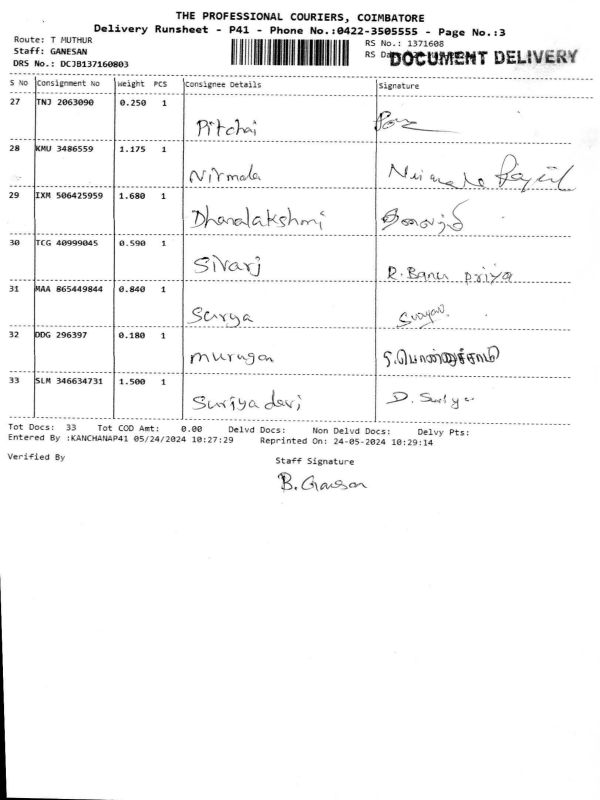 THE PROFESSIONAL COURIERS, COIMBATORE
Delivery Runsheet - P41 - Phone No.:0422-3505555 - Page No.:3
Route: T MUTHUR
RS No.: 1371608
Staff: GANESAN
DOCUMENT DELIVERY
DRS No.: DCJB137160803
S No Consignment No Weight PCS Consignee Details Signature
27 TNJ 2063090 0.250 1 Pitchai
28 KMU 3486559 1.175 1 Nirmala
29 IXM 506425959 1.680 1 Dhanalakshmi
30 TCG 40999045 0.590 1 Sivarj R.Banu priya
31 MAA 865449844 0.840 1 Surya
32 DDG 296397 0.180 1 murugan
33 SLM 346634731 1.500 1 Suriya devi D. Suriya
Tot Docs: 33 Tot COD Amt: 0.00 Delvd Docs: Non Delvd Docs: Delvy Pts:
Entered By :KANCHANAP41 05/24/2024 10:27:29 Reprinted On: 24-05-2024 10:29:14
Verified By
Staff Signature
B. Ganesan